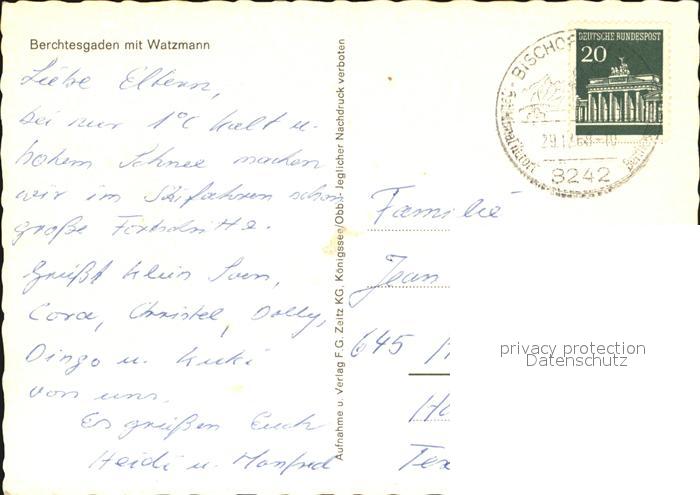 Berchtesgaden mit Watzmann
Liebe Eltern,
bei nur 1°C kalt u.
hohem Schnee machen
wir im Skifahren schon
große Fortschritte.
Grüßt klein Sven,
Cora, Christel, Dolly,
Dingo u. Kuki
von uns.
Es grüßen Euch
Heidi u. Manfred
Aufnahme u. Verlag F.G. Zeitz KG, Königssee/Obb. - Jeglicher Nachdruck verboten
BISCHOF
8242
DEUTSCHE BUNDESPOST
20
Familie
Jean
645
privacy protection
Datenschutz